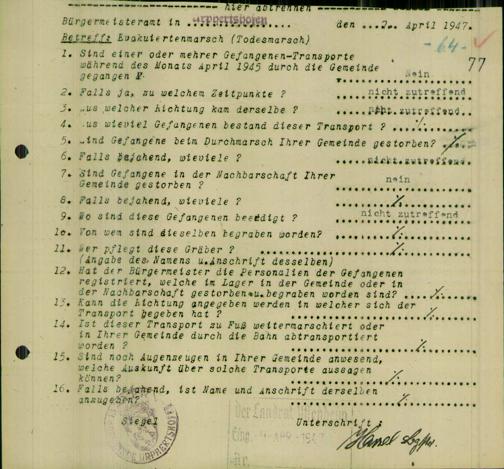 hier abtrennen
Bürgermeisteramt in Urpertshofen den 2. April 1947.
Betreff: Evakuiertenmarsch (Todesmarsch)
- 64 -
77
1. Sind einer oder mehrer Gefangenen-Transporte
während des Monats April 1945 durch die Gemeinde
gegangen ? Nein
2. Falls ja, zu welchem Zeitpunkte ? nicht zutreffend
3. Aus welcher Richtung kam derselbe ? nicht zutreffend
4. Aus wieviel Gefangenen bestand dieser Transport ? ./.
5. Sind Gefangene beim Durchmarsch Ihrer Gemeinde gestorben? ./.
6. Falls bejahend, wieviele ? nicht zutreffend
7. Sind Gefangene in der Nachbarschaft Ihrer
Gemeinde gestorben ? nein
8. Falls bejahend, wieviele ? ./.
9. Wo sind diese Gefangenen beerdigt ? nicht zutreffend
10. Von wem sind dieselben begraben worden? ./.
11. Wer pflegt diese Gräber ? ./.
(Angabe des Namens u.Anschrift desselben)
12. Hat der Bürgermeister die Personalien der Gefangenen
registriert, welche im Lager in der Gemeinde oder in
der Nachbarschaft gestorben u.begraben worden sind? ./.
13. Kann die Richtung angegeben werden in welcher sich der
Transport begeben hat ? ./.
14. Ist dieser Transport zu Fuß weitermarschiert oder
in Ihrer Gemeinde durch die Bahn abtransportiert
worden ? ./.
15. Sind noch Augenzeugen in Ihrer Gemeinde anwesend,
welche Auskunft über solche Transporte aussagen
können? ./.
16. Falls bejahend, ist Name und Anschrift derselben
anzugeben? ./.
Siegel
Der Landrat
Eing. APR. 1947
Nr.
Unterschrift: